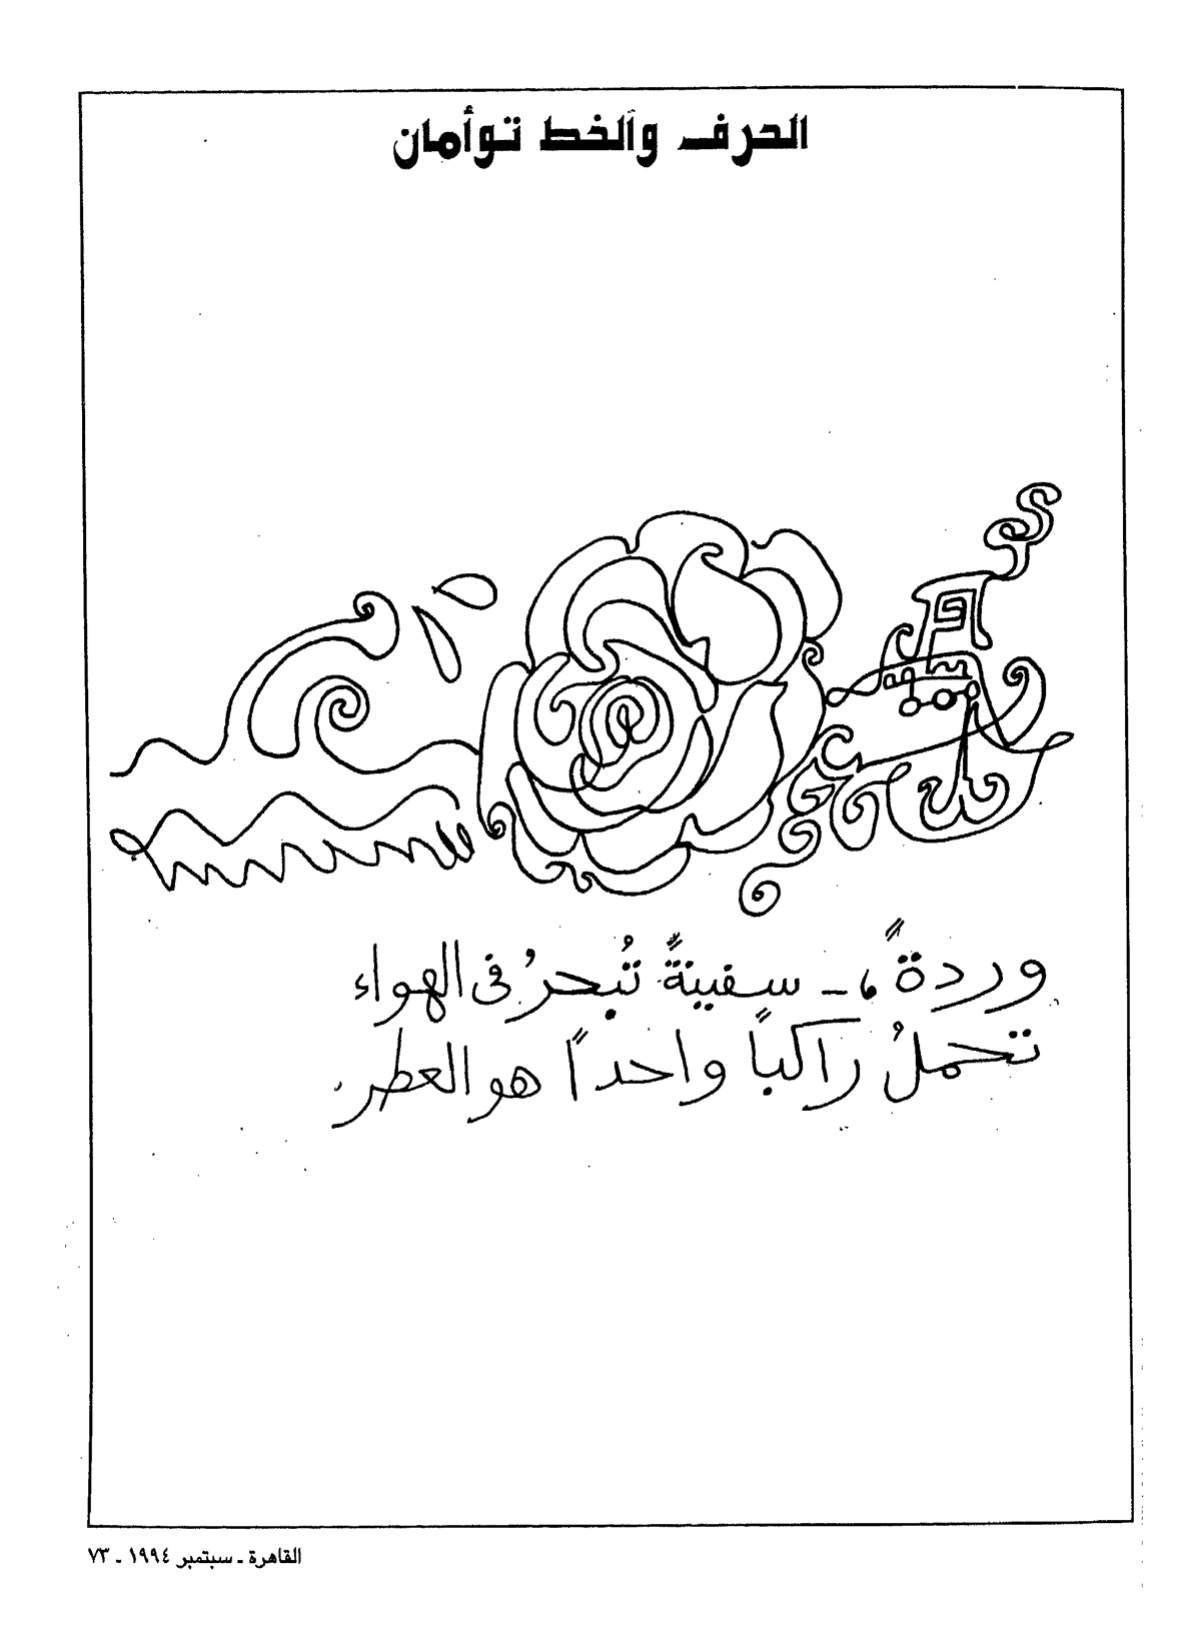 الحرف والخط توأمان
وردةً، - سفينةً تُبحرُ فى الهواء
تحملُ راكباً واحداً هو العطر.
القاهرة ـ سبتمبر ١٩٩٤ ـ ٧٣